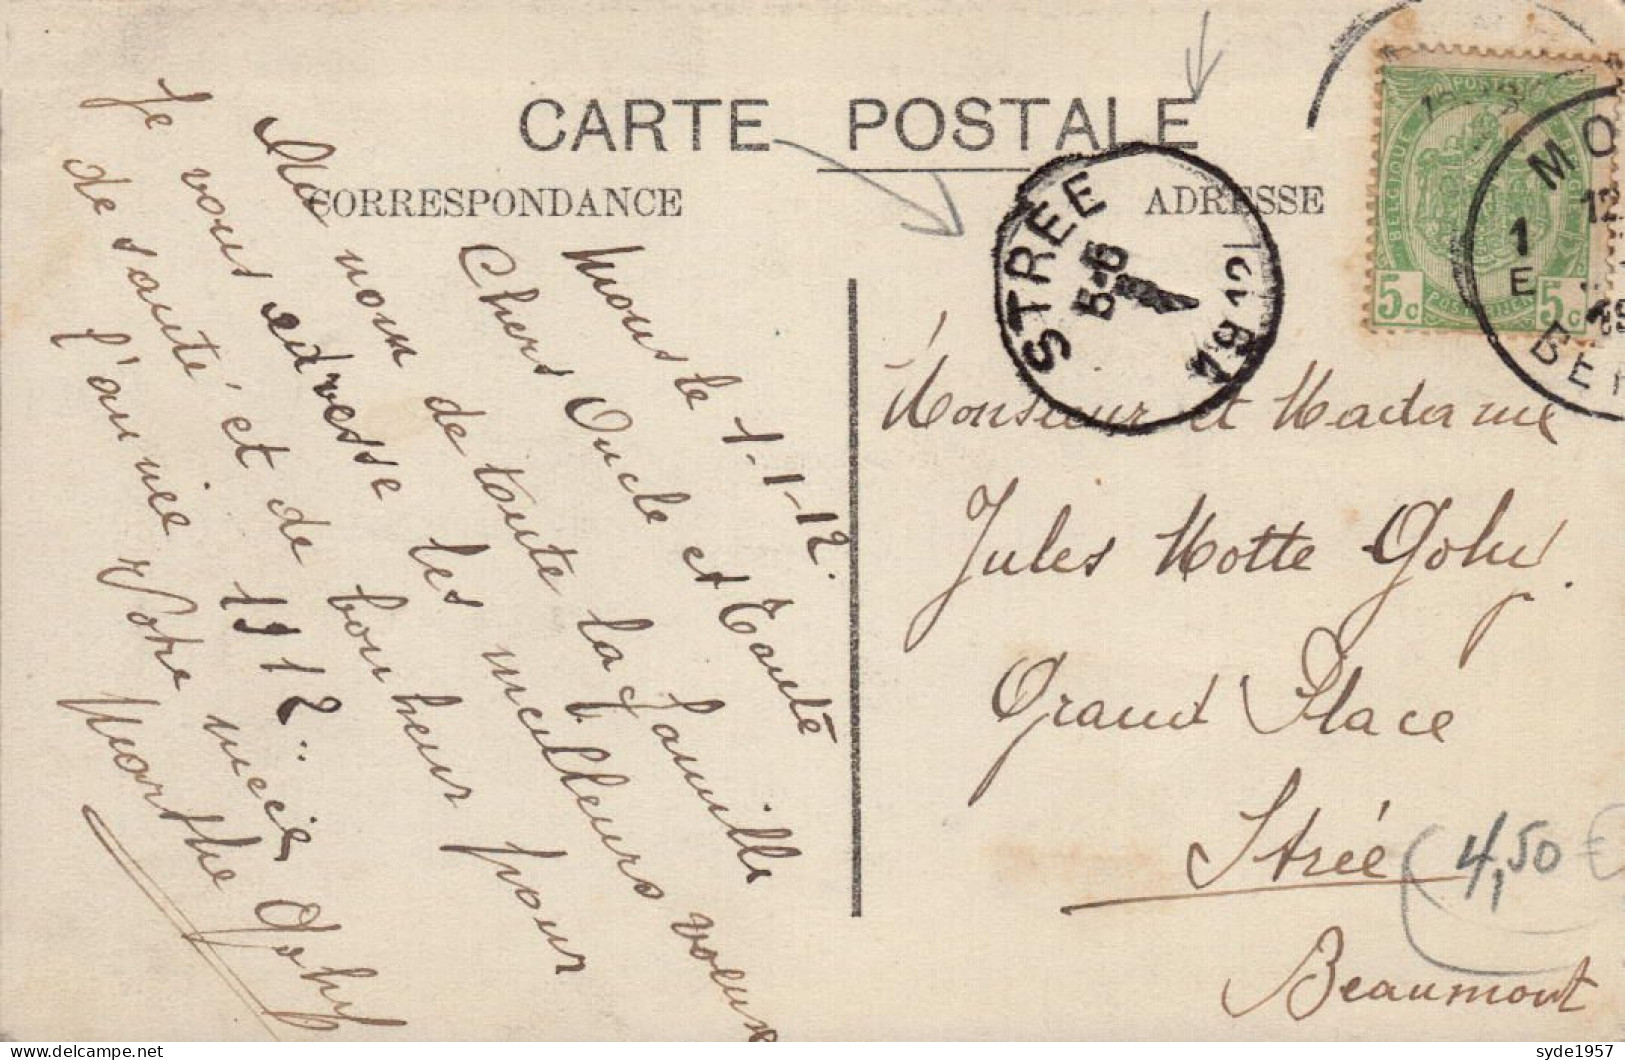 CARTE POSTALE
CORRESPONDANCE
ADRESSE
Mons le 1-1-12.
Chers Oncle et Tante
Au nom de toute la famille
Je vous adresse les meilleurs voeux
de santé et de bonheur pour
l'année 1912.
Votre nièce
Marthe Gohy
Monsieur et Madame
Jules Motte Gohy.
Grand Place
Strée
Beaumont
STRÉE
5-6
1912
POSTES
BELGIQUE
BELGIË
POSTERIJEN
5c
5c
MO
12
1
E
BE
4,50 €
syde1957